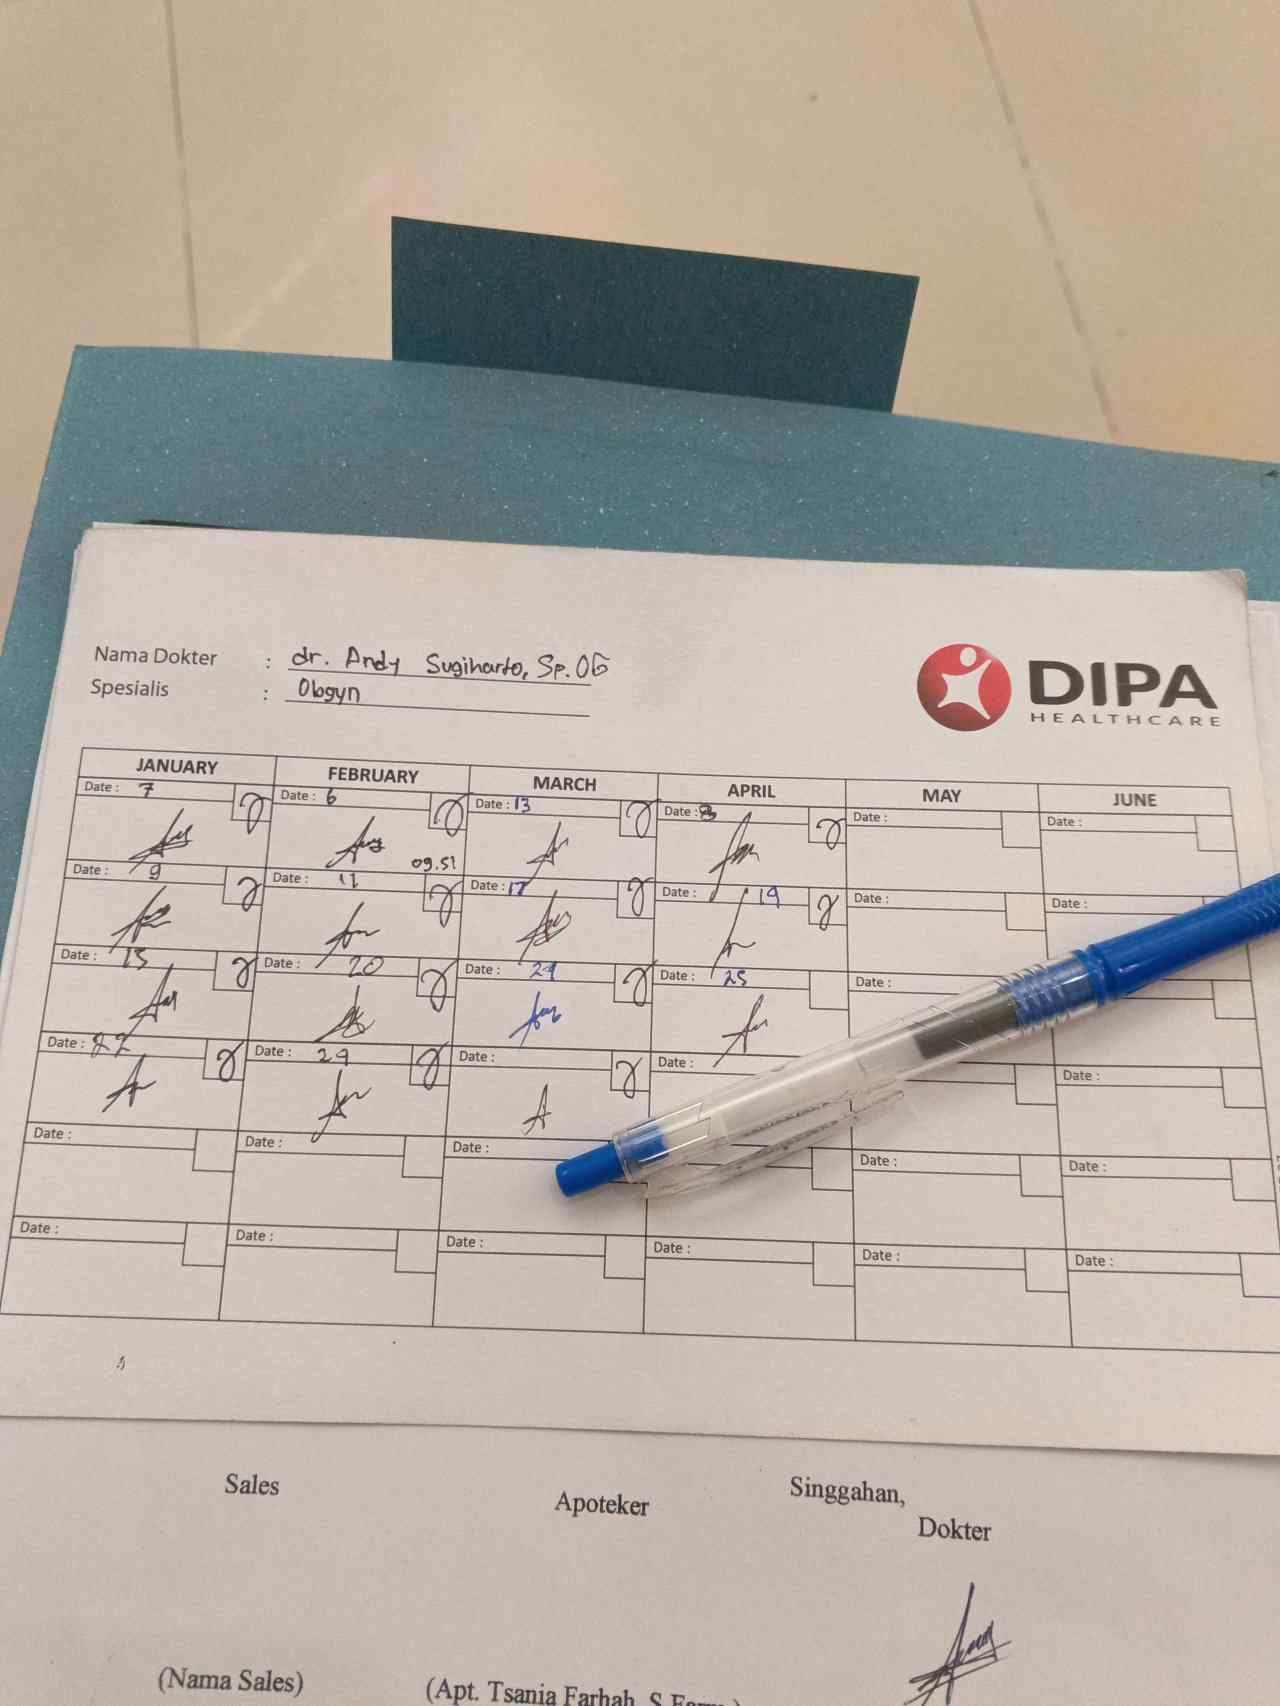 Nama Dokter : dr. Andy Sugiharto, Sp.OG
Spesialis : Obgyn
DIPA
HEALTHCARE
JANUARY FEBRUARY MARCH APRIL MAY JUNE
Date : 7 Date : 6 Date : 13 Date : 8 Date : Date :
09.51
Date : 9 Date : 11 Date : 17 Date : 19 Date : Date :
Date : 15 Date : 20 Date : Date : 25 Date :
Date : 22 Date : Date : Date : Date :
Date : Date : Date : Date : Date :
Date : Date : Date : Date : Date : Date :
Singgahan,
Sales Apoteker Dokter
(Nama Sales) (Apt. Tsania Farhah, S.Farm.)